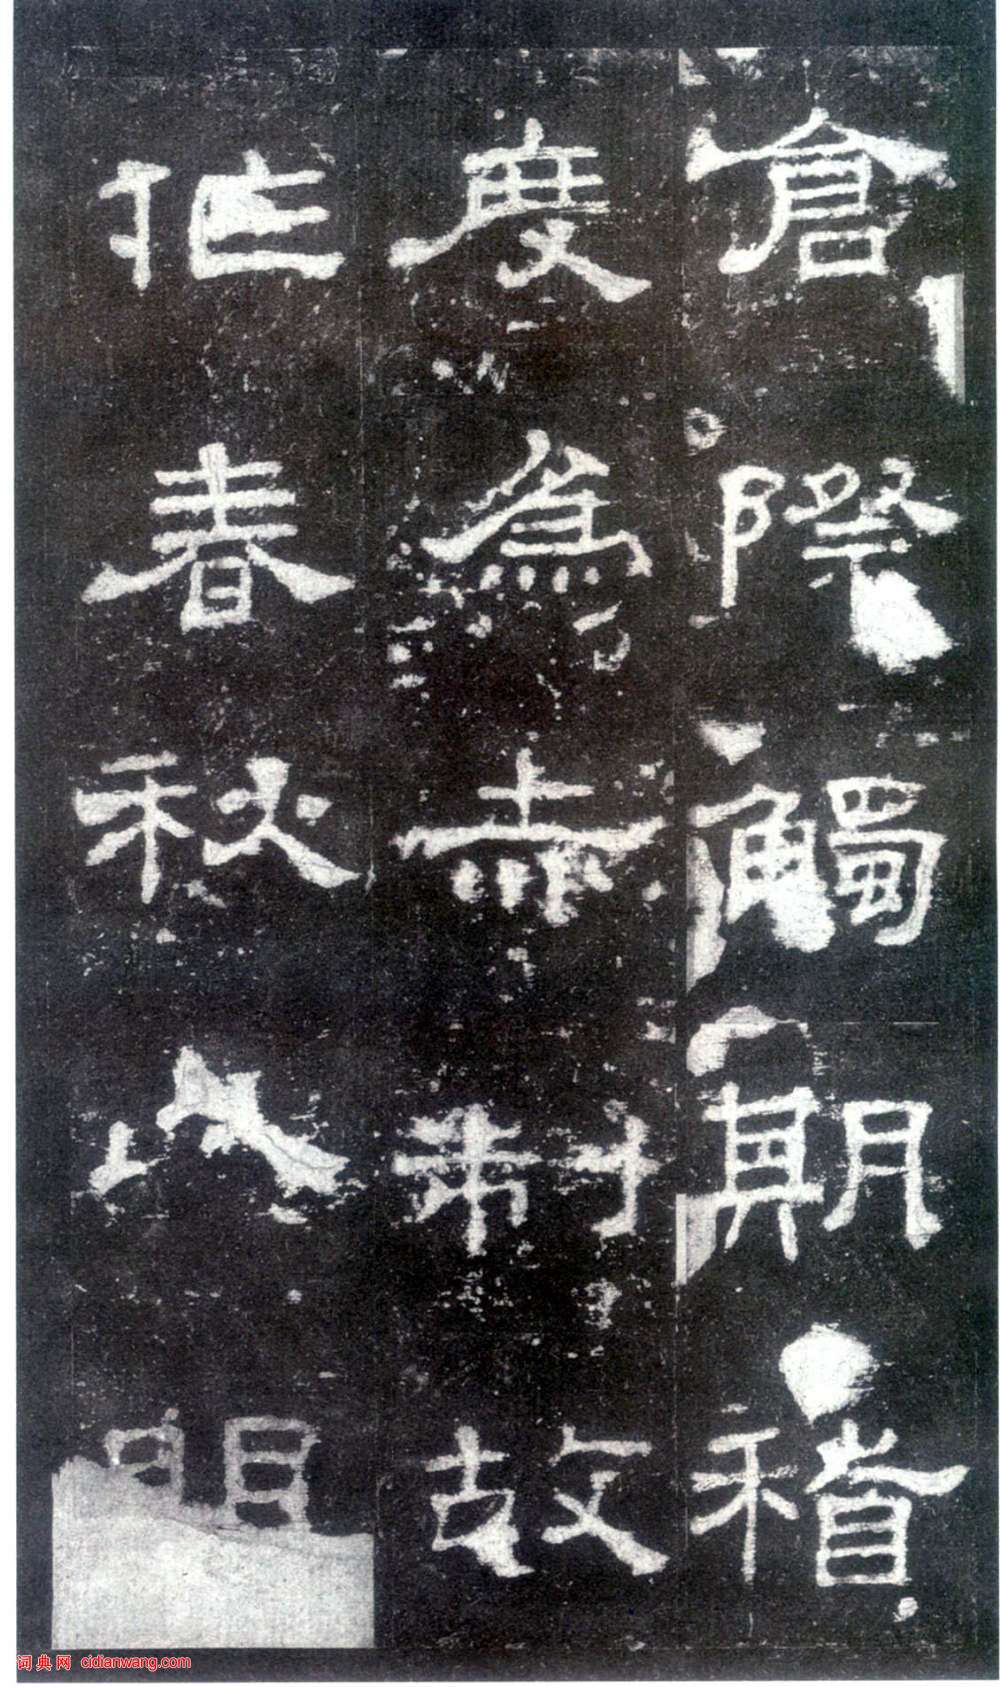 倉際觸期稽
度為赤制故
作春秋以明
词典网 cidianwang.com